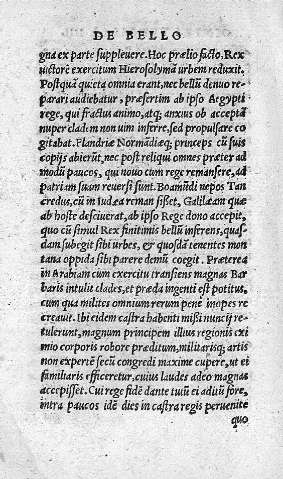 DE BELLO
gna ex parte supplevere. Hoc prælio facto, Rex
victorē exercitum Hierosolymā urbem reduxit.
Postquā quieta omnia erant, nec bellū denuo re-
parari audiebatur, præsertim ab ipso Aegypti
rege, qui fractus animo, atq; anxius ob acceptā
nuper cladem non uim inferre, sed propulsare co
gitabat. Flandriæ Normādiæq; princeps cū suis
copijs abierūt, nec post reliqui omnes præter ad
modū paucos, qui novo cum rege remansere, ad
patriam suam reuersi sunt. Boamūdi nepos Tan
credus, cū in Iudæa reman sisset, Galilæam quæ
ab hoste desciuerat, ab ipso Rege dono accepit,
quo cū simul Rex finitimis bellū inferens, quas-
dam subegit sibi urbes, & quosdā tenentes mon
tana oppida sibi parere demū coegit. Præterea
in Arabiam cum exercitu transiens magnas Bar
baris intulit clades, et præda ingenti est potitus,
cum qua milites omnium rerum penè inopes re
creauit. Ibi eidem castra habenti missi nuncij re-
tulerunt, magnum principem illius regionis exi
mio corporis robore præditum, militarisq; artis
non expertē secū congredi maxime cupere, ut ei
familiaris efficeretur, cuius laudes adeo magnas
accepisset. Cui rege fidē dante tutū ei aditū fore,
intra paucos idē dies in castra regis peruenite
quo